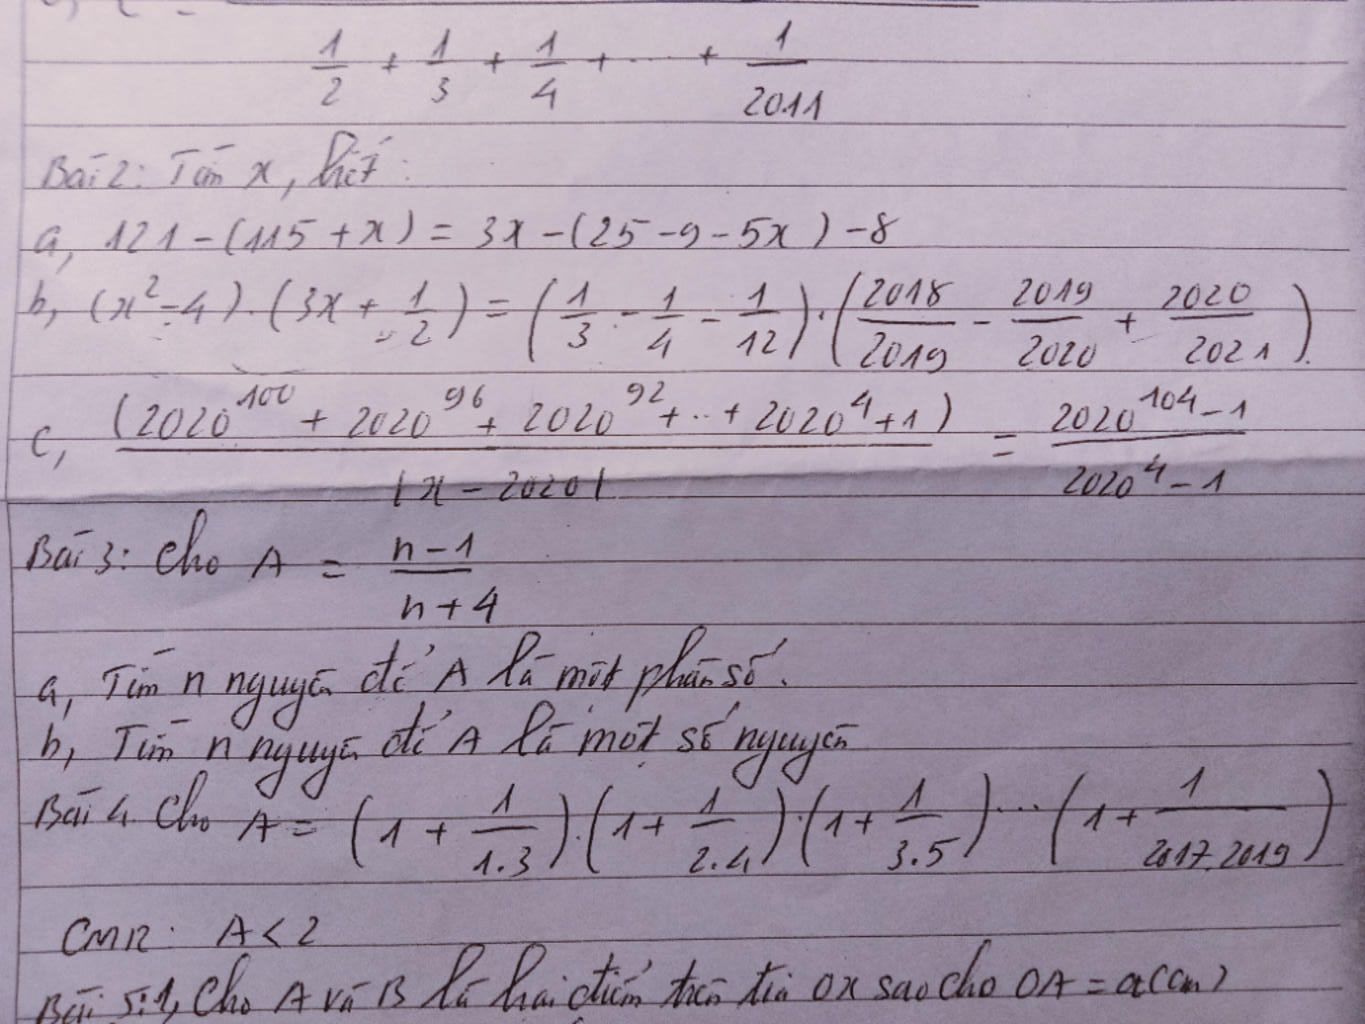 1/2 + 1/3 + 1/4 + ... + 1/2011
Bài 2: Tìm x, biết:
a, 121 - (115 + x) = 3x - (25 - 9 - 5x) - 8
b, (x² - 4) . (3x + 1/2) = (1/3 - 1/4 - 1/12) . (2018/2019 - 2019/2020 + 2020/2021).
c, (2020^100 + 2020^96 + 2020^92 + ... + 2020^4 + 1) / |x - 2020| = (2020^104 - 1) / (2020^4 - 1)
Bài 3: Cho A = (n - 1)/(n + 4)
a, Tìm n nguyên để A là một phân số.
b, Tìm n nguyên để A là một số nguyên
Bài 4. Cho A = (1 + 1/1.3).(1 + 1/2.4).(1 + 1/3.5)...(1 + 1/2017.2019)
CMR: A < 2
Bài 5: 1, Cho A và B là hai điểm trên tia Ox sao cho OA = a(cm)